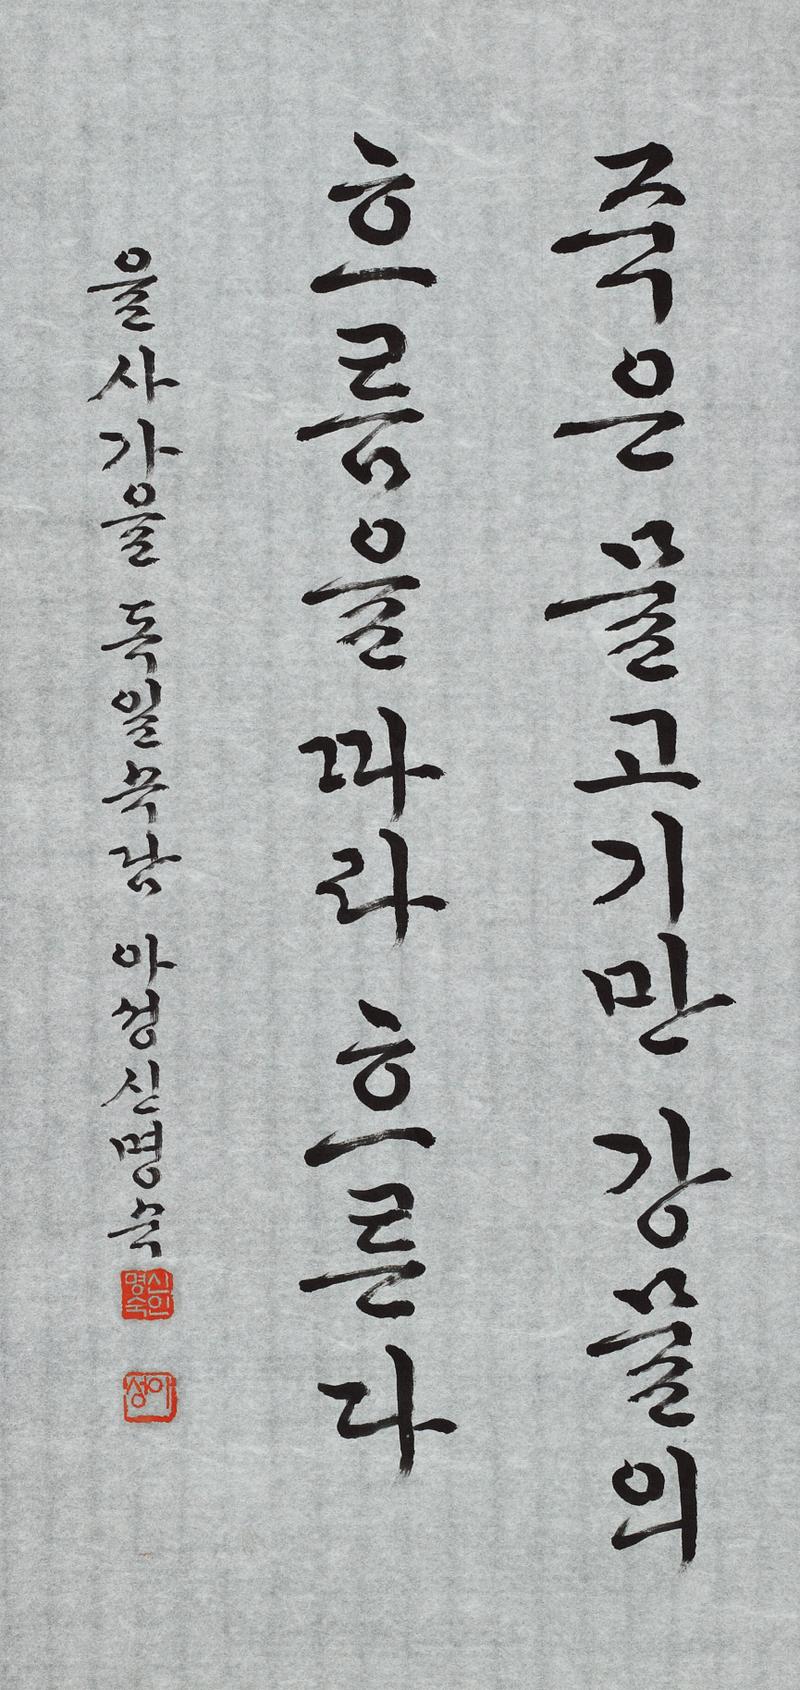 죽은 물고기만 강물의
흐름을 따라 흐른다
을사가을 흑월숙남 아성신명숙
신인
명숙
아성